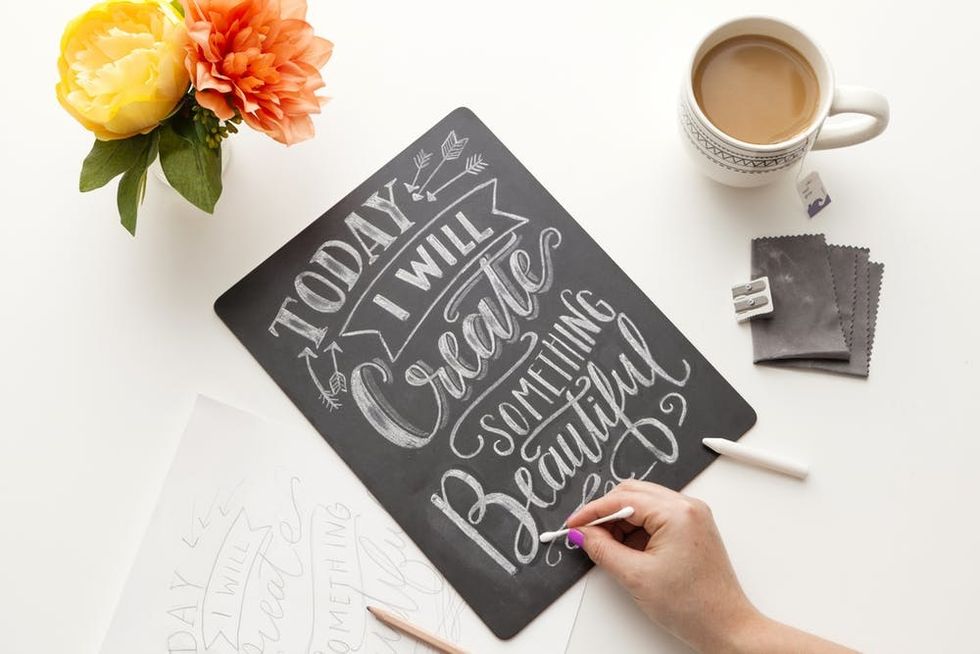 TODAY
I WILL
Create
SOMETHING
Beautiful
DAY
I WILL
reate
OMETHING